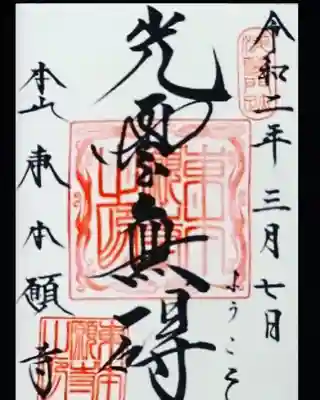 令和二年三月七日
ようこそ
光雲無碍
本山東本願寺